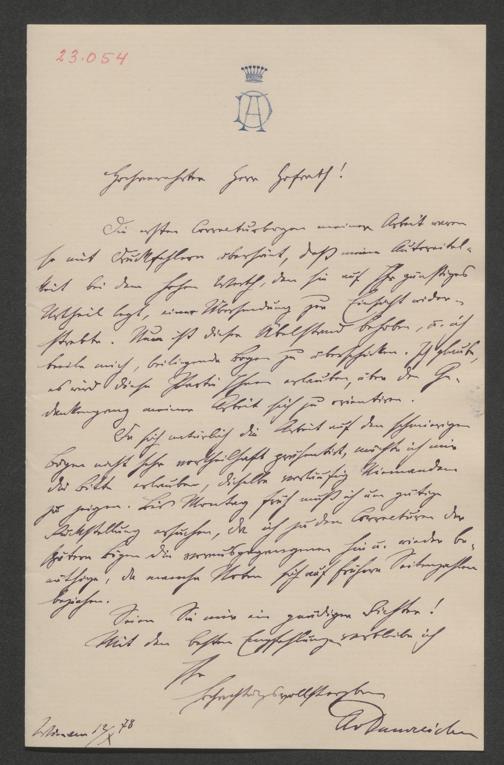 23.054
Hochverehrter Herr Hofrath!
Die ersten Correcturbogen meiner Arbeit waren
so mit Druckfehlern übersäet, daß meine Autoreitel-
keit bei dem hohen Werth, den sie auf Ihr günstiges
Urtheil legt, einer Übersendung zur Einsicht wider-
strebte. Nun ist dieser Übelstand behoben, u. ich
beeile mich, beiliegende Bogen zu überschicken. Ich glaube,
es wird diese Partie Ihnen erlauben, über den Ge-
dankengang meiner Arbeit sich zu orientiren.
Da sich natürlich die Arbeit auf den schmierigen
Bogen nicht sehr vortheilhaft präsentirt, möchte ich mir
die Bitte erlauben, dieselbe vorläufig Niemandem
zu zeigen. Bis Montag früh muß ich um gütige
Rückstellung ersuchen, da ich zu den Correcturen der
spätern Bogen die vorausgegangenen hie u. wieder be-
nöthige, da manche Noten sich auf frühere Seitenzahlen
beziehen.
Seien Sie mir ein gnädiger Richter!
Mit den besten Empfehlungen verbleibe ich
Ihr
hochachtungsvollst ergebener
Wien am 12/X 78